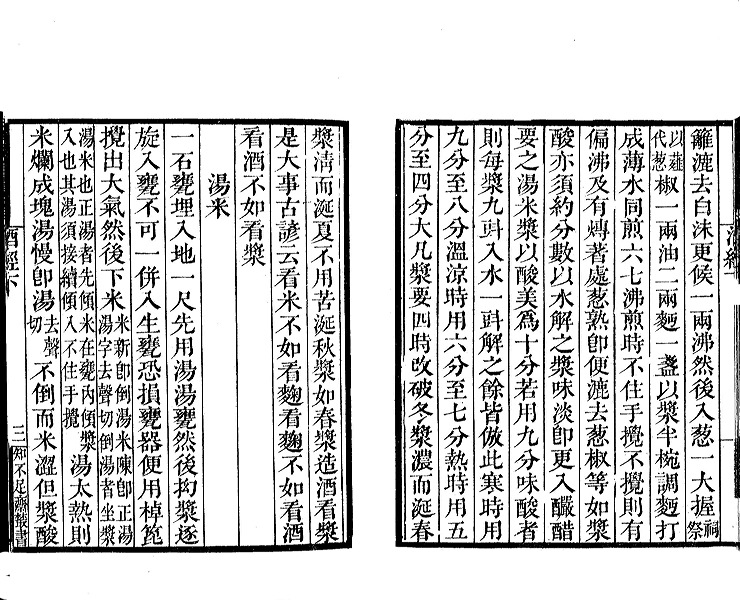 籬漉去白沫更候一兩沸然後入葱一大握祠祭
以薤代葱椒一兩油二兩麵一盞以漿半椀調麵打
成薄水同煎六七沸煎時不住手攪不攪則有
偏沸及有煿著處葱熟卽便漉去葱椒等如漿
酸亦須約分數以水解之漿味淡卽更入釅醋
要之湯米漿以酸美爲十分若用九分味酸者
則每漿九㪷入水一㪷解之餘皆倣此寒時用
九分至八分溫涼時用六分至七分熱時用五
分至四分大凡漿要四時改破冬漿濃而涎春
漿淸而涎夏不用苦涎秋漿如春漿造酒看漿
是大事古諺云看米不如看麴看麴不如看酒
看酒不如看漿
湯米
一石甕埋入地一尺先用湯湯甕然後抝漿逐
旋入甕不可一併入生甕恐損甕器便用棹篦
攪出大氣然後下米米新卽倒湯米陳卽正湯湯字去聲切倒湯者坐漿
湯米也正湯者先傾米在甕內傾漿入也其湯須接續傾入不住手攪湯太熱則
米爛成塊湯慢卽湯去聲切不倒而米澀但漿酸
酒經下
三
知不足齋叢書